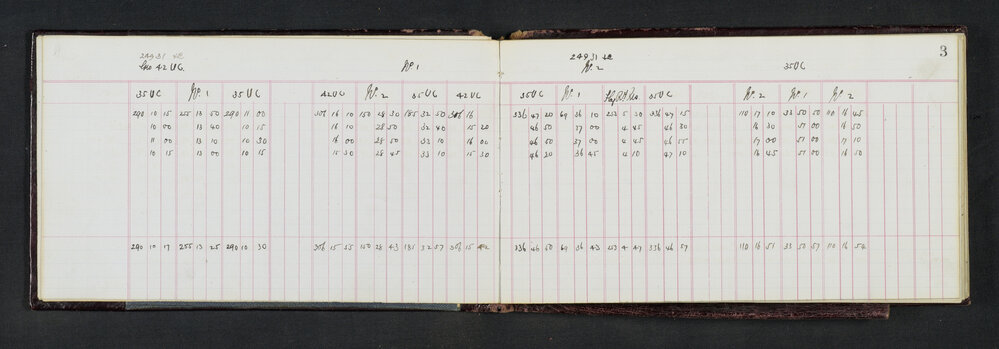 3
24931 42 24931 42
42 UC Nº 1 Nº 2 35 UC
35 UC Nº 1 35 UC 42 UC Nº 2 35 UC 42 UC 35 UC Nº 1 35 UC Nº 2 Nº 1 Nº 2
290 10 15 255 13 50 290 11 00 306 16 10 150 28 30 185 32 50 306 16 336 47 20 69 36 10 252 5 30 336 47 15 110 17 10 33 50 50 110 16 45
10 00 13 40 10 15 16 10 28 50 32 40 15 20 46 50 37 00 4 45 46 30 16 30 51 00 16 50
11 00 13 10 10 30 16 00 28 50 33 10 16 00 46 50 37 00 4 45 46 55 17 00 51 00 17 10
10 15 13 00 10 15 15 30 28 45 33 10 15 30 46 20 36 45 4 10 47 10 16 45 51 00 16 50
290 10 17 255 13 25 290 10 30 306 15 55 150 28 43 185 32 57 306 15 42 336 46 50 69 36 43 253 4 47 336 46 57 110 16 51 33 50 57 110 16 54